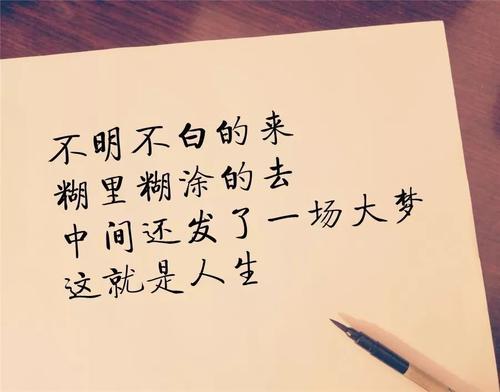 不明不白的来
糊里糊涂的去
中间还发了一场大梦
这就是人生